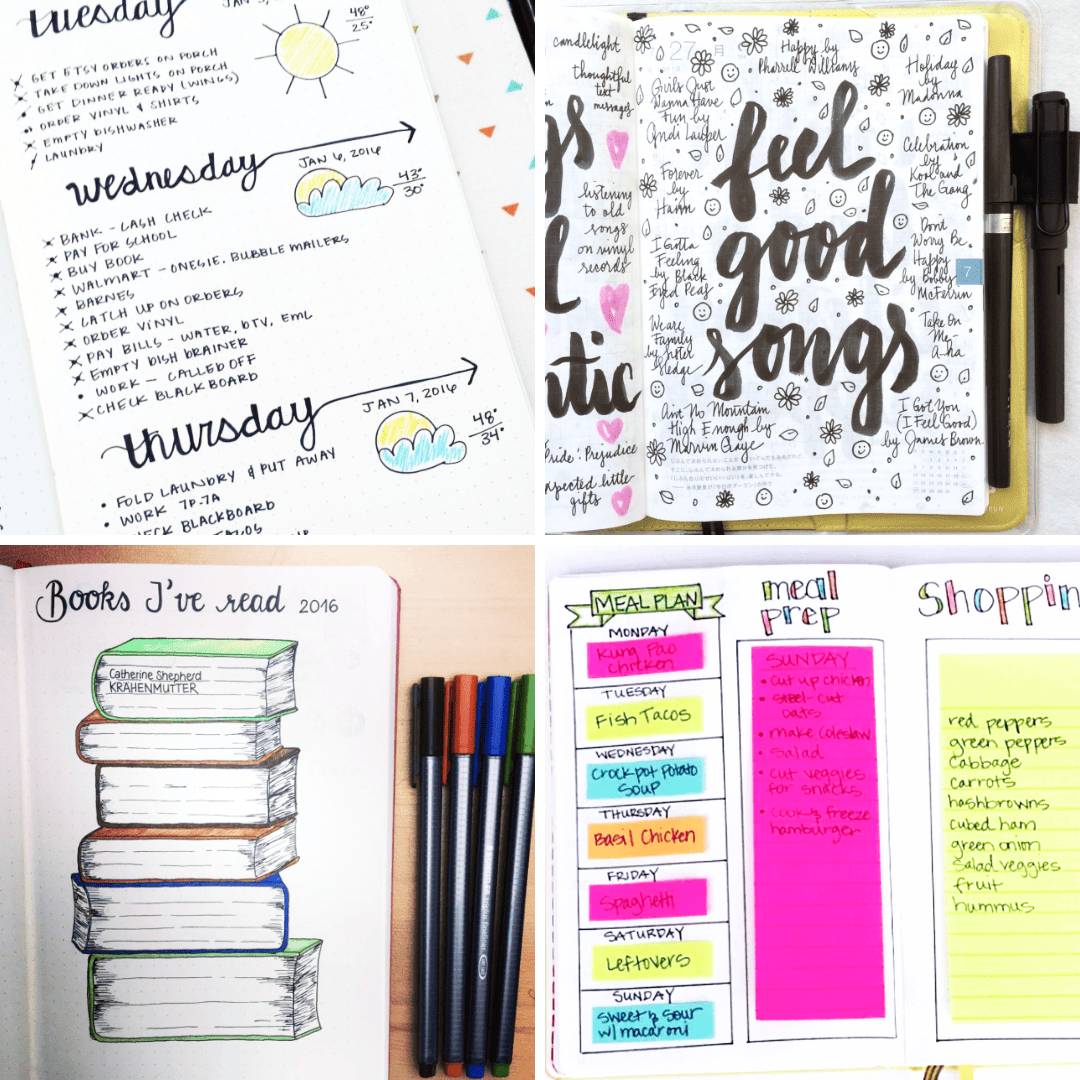 tuesday
48°
25°
GET ETSY ORDERS ON PORCH
TAKE DOWN LIGHTS ON PORCH
GET DINNER READY (WINGS)
ORDER VINYL & SHIRTS
EMPTY DISHWASHER
LAUNDRY
wednesday
JAN 6, 2016
43°
30°
BANK - CASH CHECK
PAY FOR SCHOOL
BUY BOOK
WALMART - ONESIE, BUBBLE MAILERS
BARNES
CATCH UP ON ORDERS
ORDER VINYL
PAY BILLS - WATER, DTV, EML
EMPTY DISH DRAINER
WORK - CALLED OFF
CHECK BLACKBOARD
thursday
JAN 7, 2016
48°
34°
FOLD LAUNDRY & PUT AWAY
WORK 7P-7A
CHECK BLACKBOARD
TACOS
candlelight
thoughtful
text
messages
listening
to old
songs
on vinyl
records
tic
Pride & Prejudice
gifts
27
feel
good
songs
Happy by
Pharrell Williams
Holiday
by
Madonna
Girls Just
Wanna Have
Fun by
Cyndi Lauper
Celebration
by
Kool and
The Gang
Forever
by
Haim
Don't
Worry Be
Happy
by Bobby
McFerrin
7
I Gotta
Feeling
by Black
Eyed Peas
Take On
Me
A-ha
We are
Family
by Sister
Sledge
Ain't No Mountain
High Enough by
Marvin Gaye
I Got You
(I Feel Good)
by James Brown
Books I've read 2016
Catherine Shepherd
KRÄHENMUTTER
MEAL PLAN
MONDAY
Kung Pao
chicken
TUESDAY
Fish Tacos
WEDNESDAY
Crockpot Potato
Soup
THURSDAY
Basil Chicken
FRIDAY
Spaghetti
SATURDAY
Leftovers
SUNDAY
Sweet & Sour
w/ macaroni
meal
prep
SUNDAY
• cut up chicken
cut
oats
• make coleslaw
• salad
• cut veggies
for snacks
• cook & freeze
hamburger
Shoppin
red peppers
green peppers
cabbage
carrots
hashbrowns
cubed ham
green onion
salad veggies
fruit
hummus